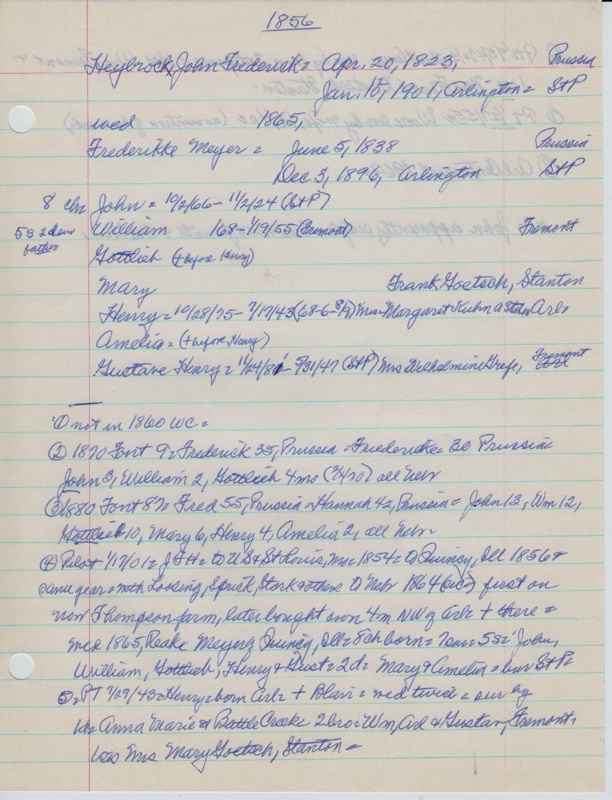 1856
Heybrock, John Frederick = Apr. 20, 1823, Prussia
Jan. 15, 1901, Arlington = StP
wed 1865,
Frederikke Meyer = June 5, 1838 Prussia
Dec 3, 1896, Arlington StP
8 chr John = 10/2/66 - 11/2/24 (StP)
5s 2d sur father William 168 - 1/19/55 (Fremont) Fremont
Gottlieb (+ before Henry)
Mary Frank Goetsch, Stanton
Henry = 10/28/75 - 7/17/43 (68-6-8/9) Mrs. Margaret Kuhn Arl=
Amelia = (+ before Henry)
Gustave Henry = 11/24/81 - 5/31/47 (StP) Mrs Wilhelmine Grefe, Fremont
① not in 1860 WC =
② 1870 Font 9 = Frederick 35, Prussia = Friedericke = 30 Prussia =
John 3, William 2, Gottlieb 4 mo (7/4/70) all Nebr
③ 1880 Font 87 = Fred 55, Prussia = Hannah 42, Prussia = John 13, Wm 12,
Gottlieb 10, Mary 6, Henry 4, Amelia 2, all Nebr =
④ Pilot 1/17/01 = J F H = to US & St Louis, Mo = 1854 = Quincy, Ill 1856 +
same year = with Loosing, Spriek, Stork & others Nebr 1864 (sic) first on
now Thompson farm, later bought own 4 m NW of Arl = + there =
mar 1865, Quincy, Ill = 8 ch born = 7 sur = 5s = John,
William, Gottlieb, Henry & Gust = 2d = Mary & Amelia = bur StP =
⑤ PT 7/29/43 = Henry = born Arl = + Blair = wed twice = sur by
Anna Marie Battle Creek 2 bro = Wm, Arl & Gustav, Fremont,
1 sis Mrs Mary Goetsch, Stanton =